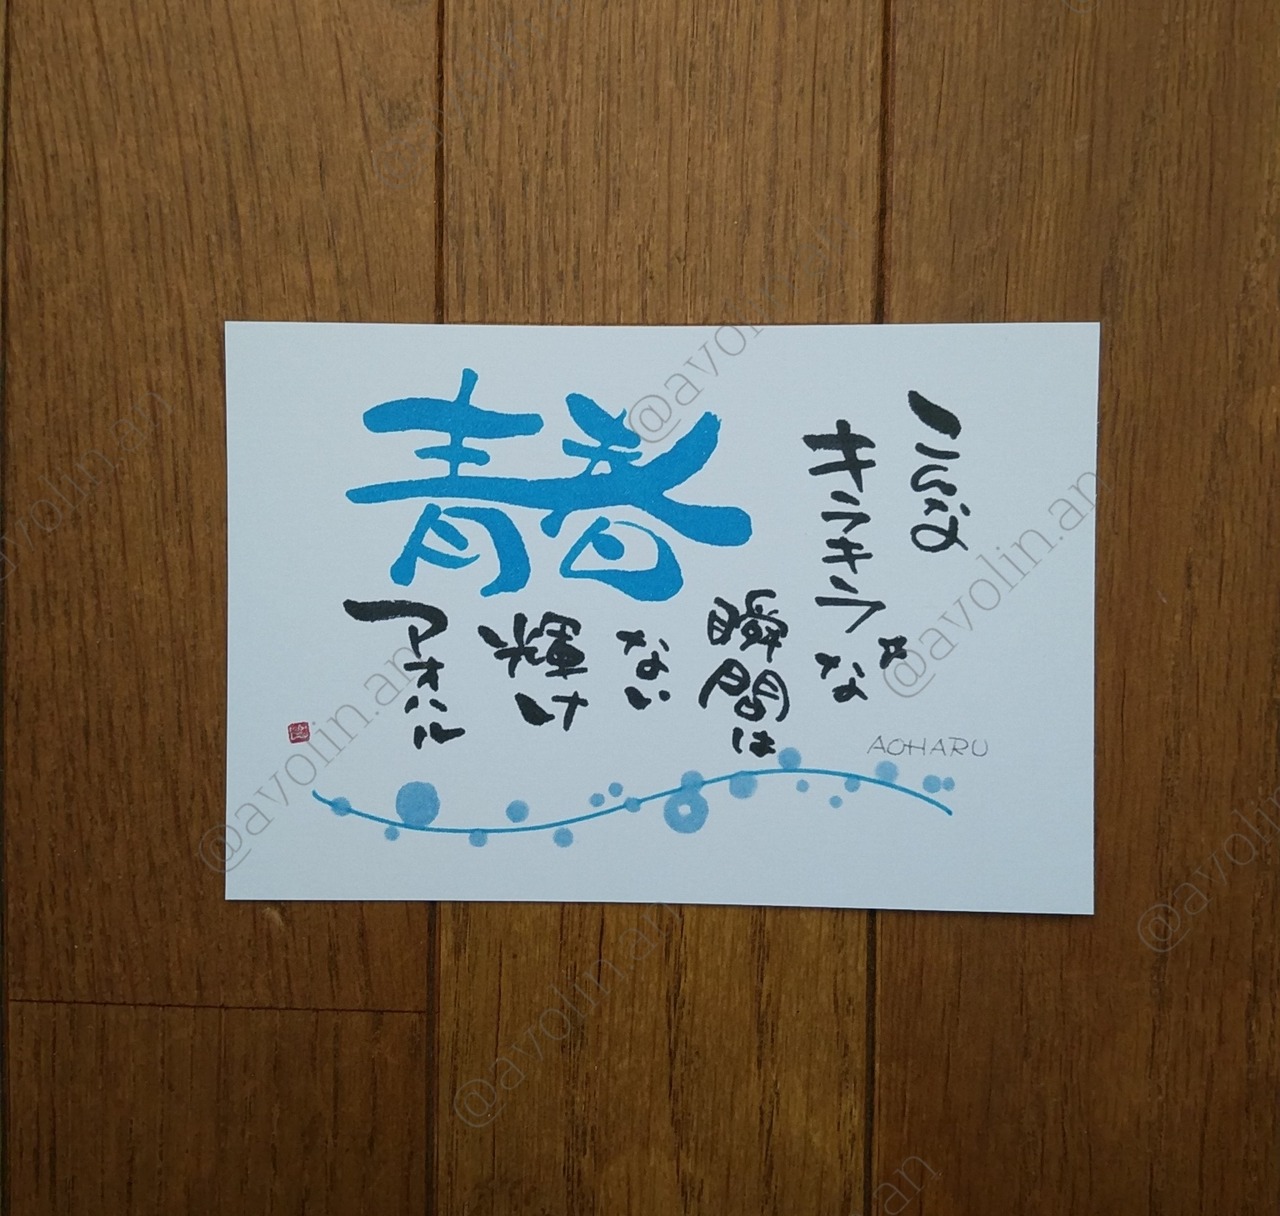 青春
こんな
キラキラな
瞬間は
ない
輝け
アオハル
AOHARU
@avolin.an